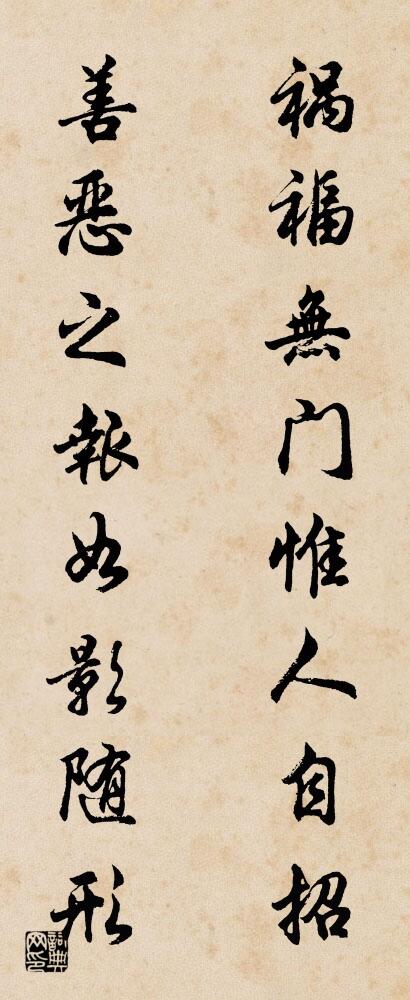 祸福無门惟人自招
善惡之報如影随形